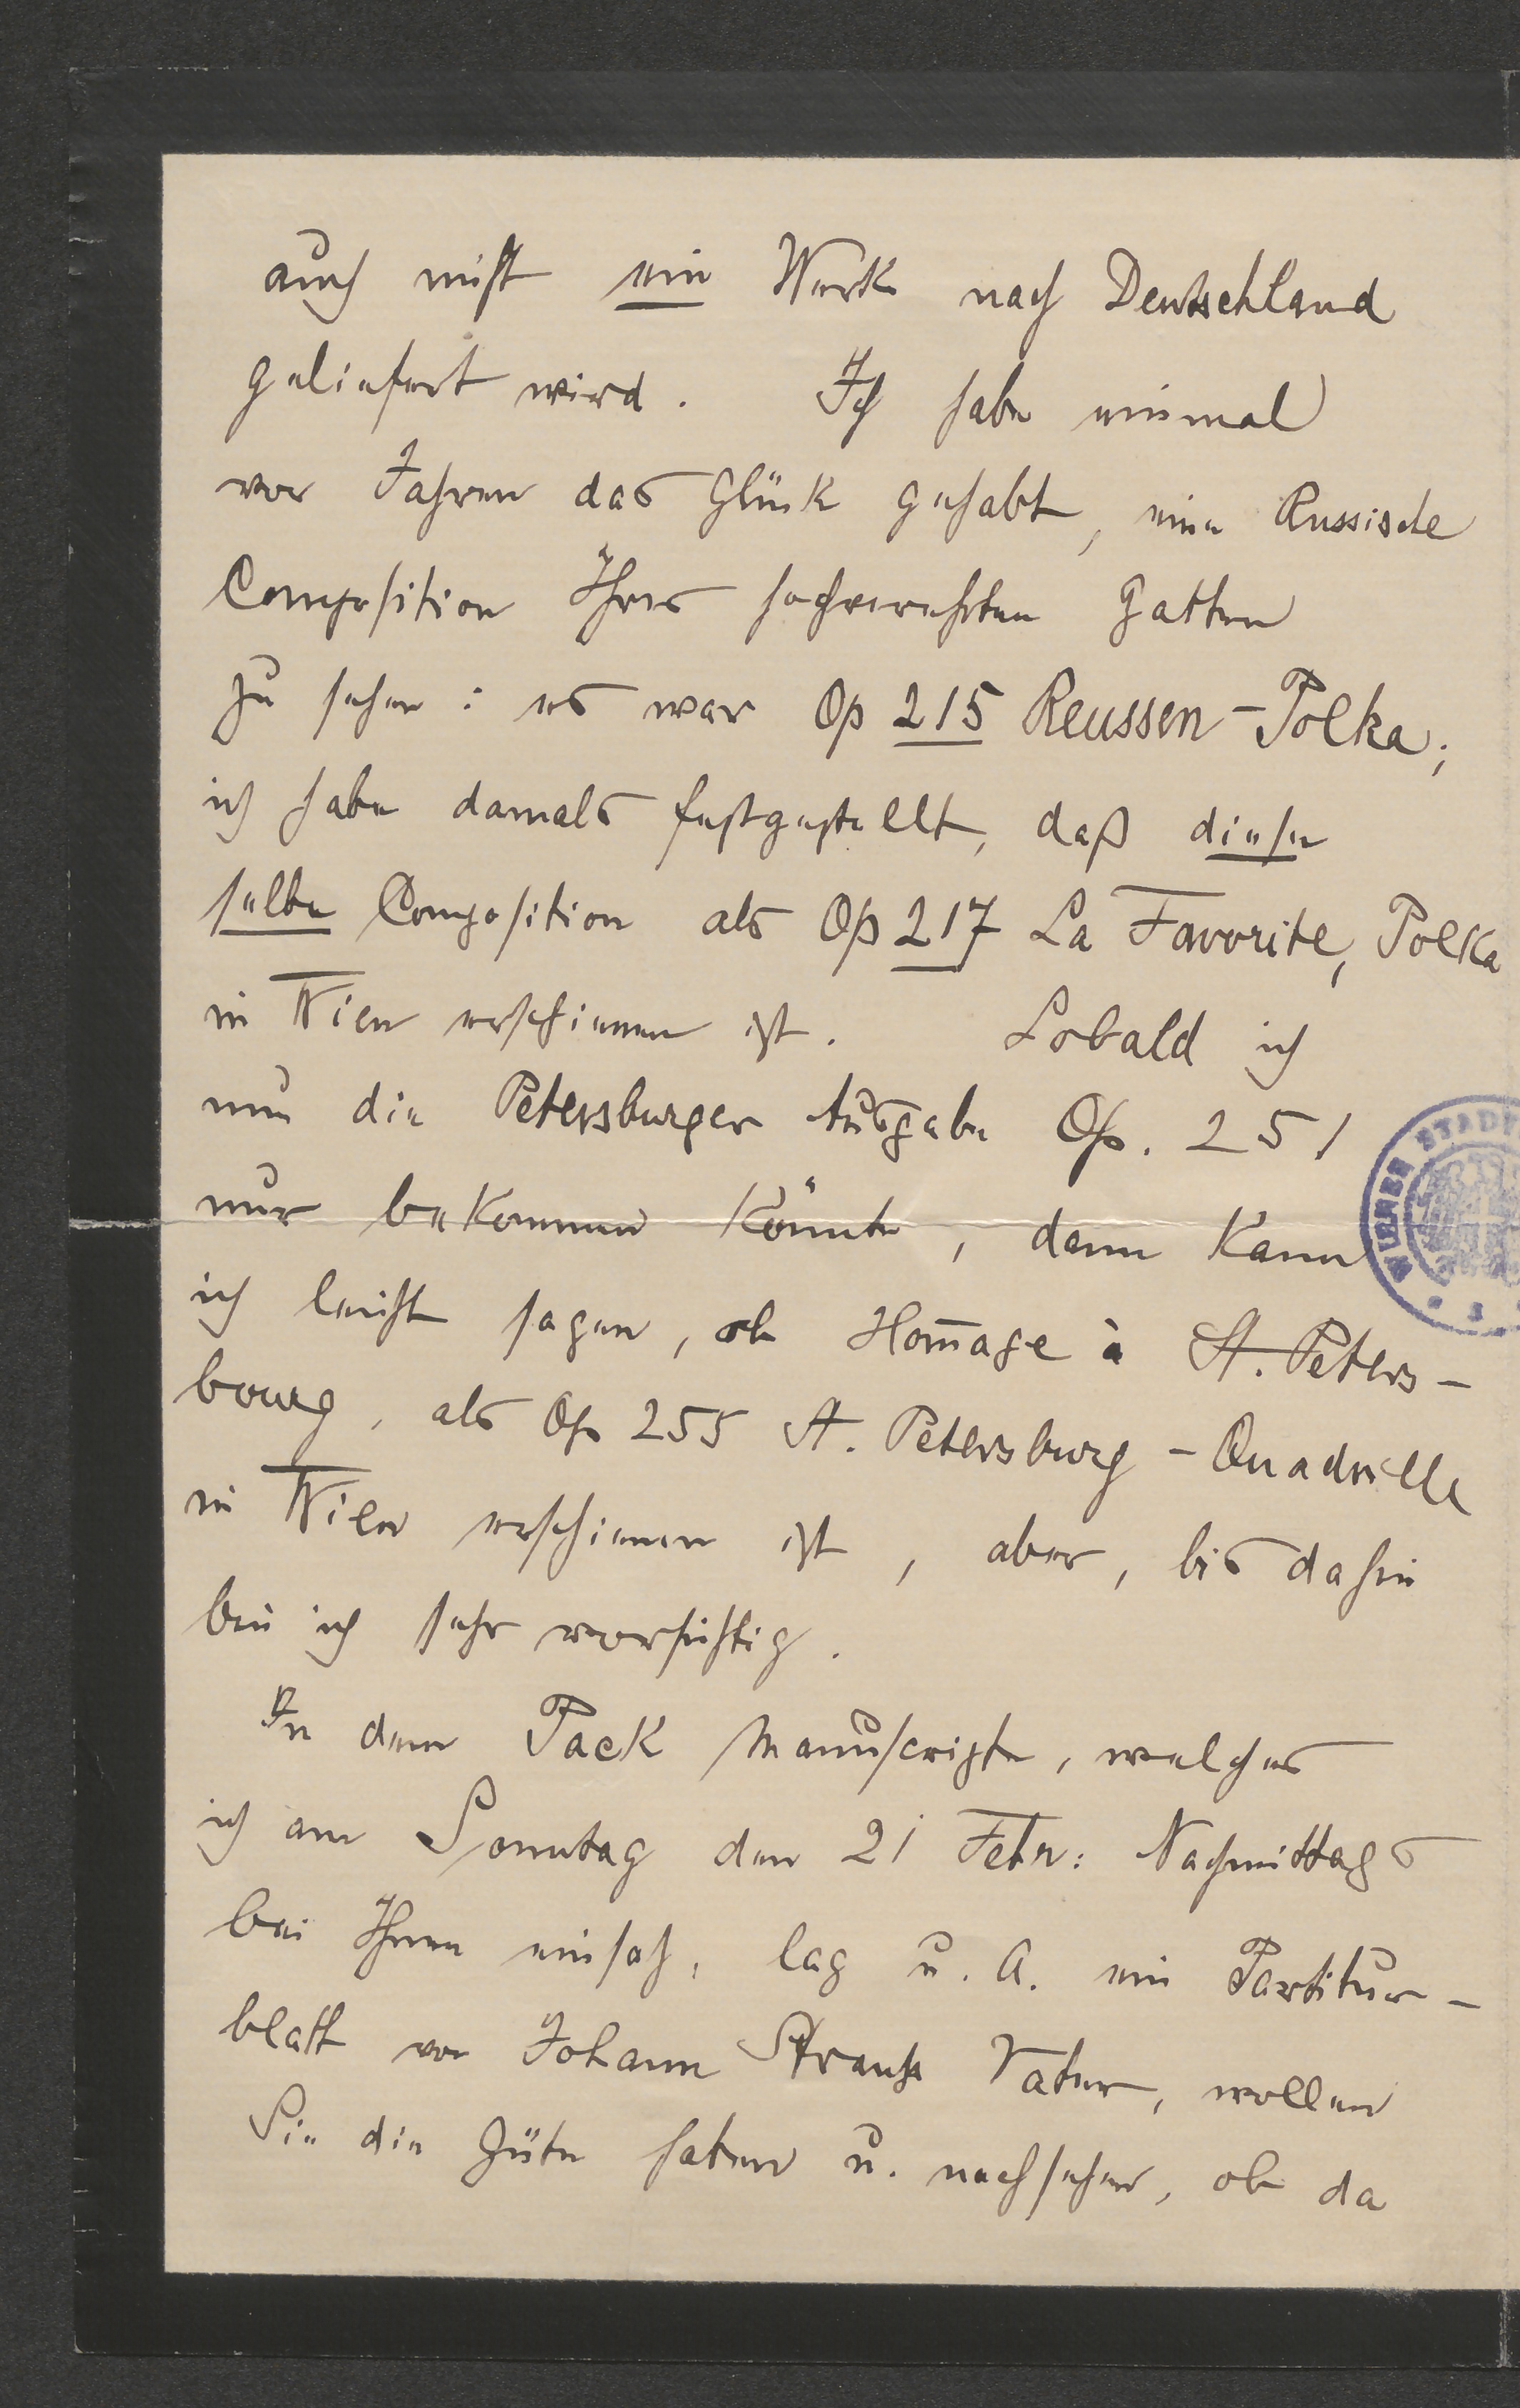 auch nicht ein Werk nach Deutschland
geliefert wird. Ich habe einmal
vor Jahren das Glück gehabt, eine Russische
Composition Ihres hochverehrten Gatten
zu sehen: es war Op 215 Reussen-Polka;
ich habe damals festgestellt, daß diese
selbe Composition als Op 217 La Favorite, Polka
in Wien erschienen ist. Sobald ich
nun die Petersburger Ausgabe Op. 251
nur bekommen könnte, dann kann
ich leicht sagen, ob Hom̅age à St. Peters-
bourg, als Op 255 St. Petersburg-Quadrille
in Wien erschienen ist, aber, bis dahin
bin ich sehr vorsichtig.
In dem Pack Manuscripte, welches
ich am Sonntag den 21 Febr: Nachmittags
bei Ihnen einsah, lag u. A. ein Partitur-
blatt von Johann Strauß Vater, wollen
Sie die Güte haben u. nachsehen, ob da
WIENER STADT